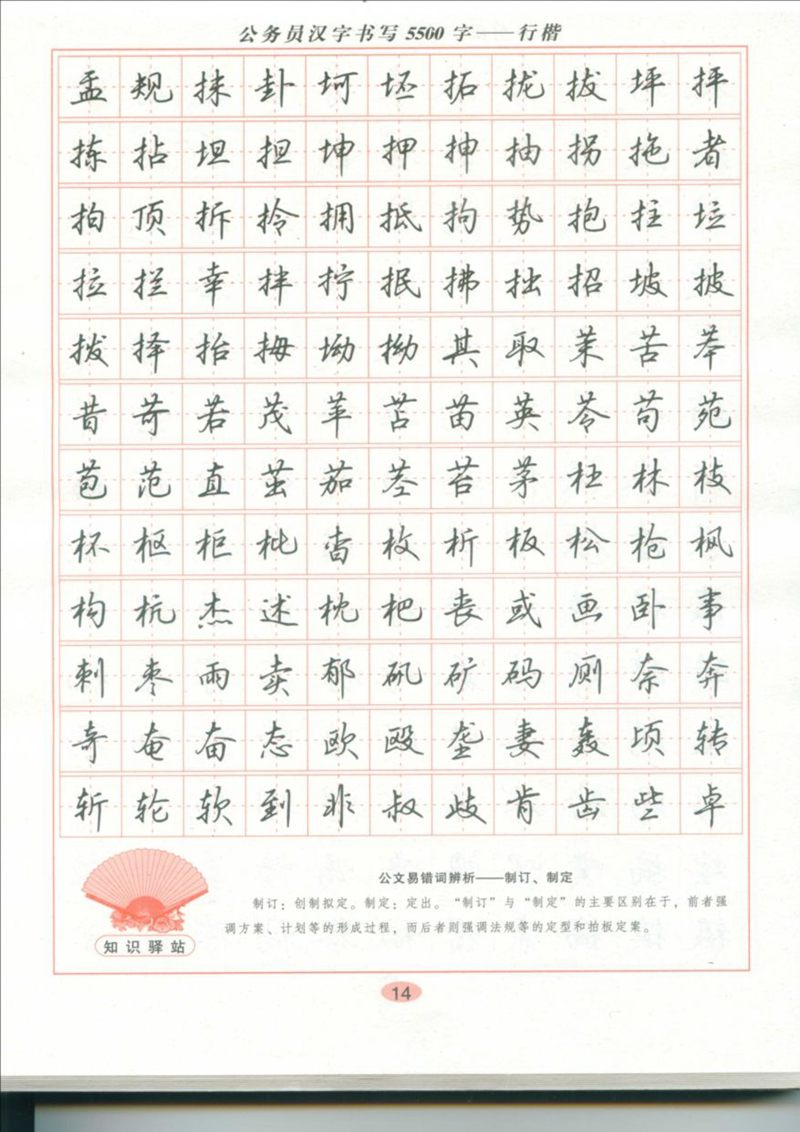 公务员汉字书写5500字——行楷
孟规抹卦坷坯拓拢拔坪抨
拣拈坦担坤押抻抽拐拖者
拍顶拆拎拥抵拘势抱拄垃
拉拦幸拌拧抿拂拙招坡披
拨择抬拇坳拗其取茉苦苯
昔苛若茂苹苫苗英苓苟苑
苞范直茁茄茎苔茅枉林枝
杯枢柜枇杳枚析板松枪枫
构杭杰述枕杷丧或画卧事
刺枣雨卖郁矾矿码厕奈奔
奇奄奋态欧殴垄妻轰顷转
斩轮软到非叔歧肯齿些卓
公文易错词辨析——制订、制定
制订：创制拟定。制定：定出。“制订”与“制定”的主要区别在于，前者强
调方案、计划等的形成过程，而后者则强调法规等的定型和拍板定案。
知识驿站
14